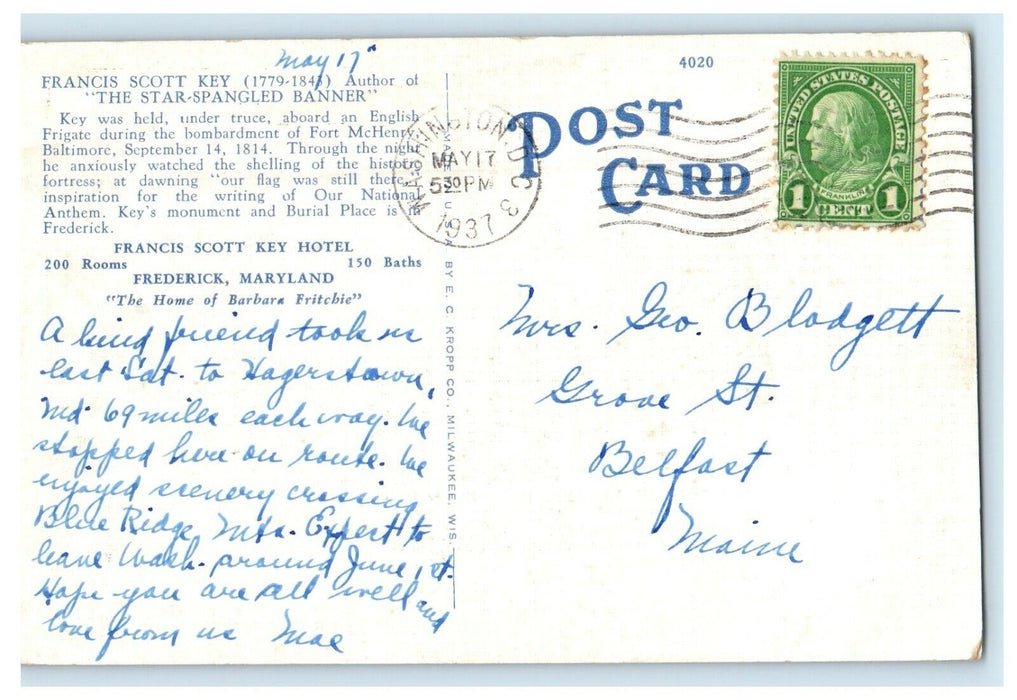 May 17
FRANCIS SCOTT KEY (1779-1843) Author of
"THE STAR-SPANGLED BANNER"
Key was held, under truce, aboard an English
Frigate during the bombardment of Fort McHenry,
Baltimore, September 14, 1814. Through the night
he anxiously watched the shelling of the historic
fortress; at dawning "our flag was still there
inspiration for the writing of Our National
Anthem. Key's monument and Burial Place is
Frederick.
FRANCIS SCOTT KEY HOTEL
200 Rooms 150 Baths
FREDERICK, MARYLAND
"The Home of Barbara Fritchie"
A kind friend took us
last Sat. to Hagerstown,
Md. 69 miles each way. We
stopped here on route. We
enjoyed scenery crossing
Blue Ridge Mts. Expect to
leave Wash. around June 1st.
Hope you are all well and
love from us Mae
BY E. C. KROPP CO., MILWAUKEE, WIS.
4020
POST
CARD
WASHINGTON, D.C.
MAY 17
5 30 PM
1937
3
UNITED STATES POSTAGE
FRANKLIN
1 CENT 1
Mrs. Geo. Blodgett
Grove St.
Belfast
Maine